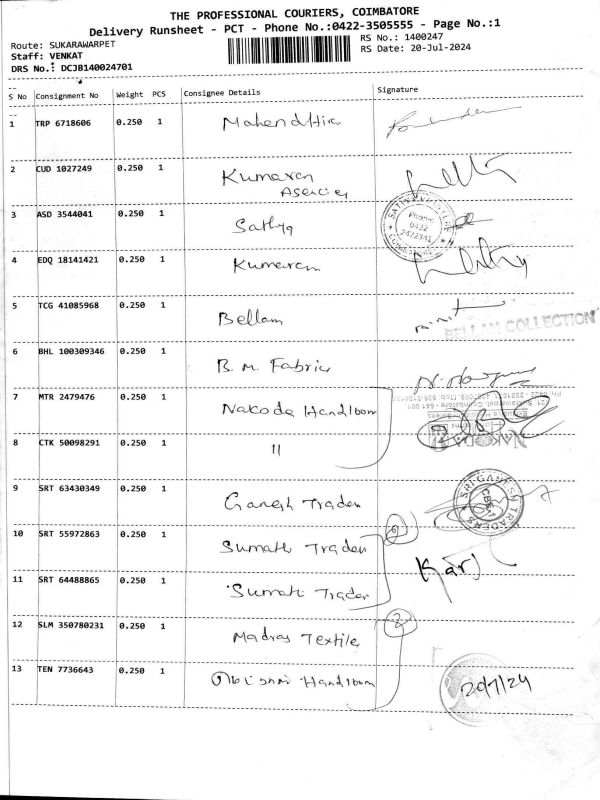 THE PROFESSIONAL COURIERS, COIMBATORE
Delivery Runsheet - PCT - Phone No.:0422-3505555 - Page No.:1
Route: SUKARAWARPET
RS No.: 1400247
Staff: VENKAT
RS Date: 20-Jul-2024
DRS No.: DCJB140024701
S No Consignment No Weight PCS Consignee Details Signature
1 TRP 6718606 0.250 1 Mahendhira
2 CUD 1027249 0.250 1 Kumaran
Agencies
3 ASD 3544041 0.250 1 Sathya
Phone:
0432
2472341
4 EDQ 18141421 0.250 1 Kumaran
5 TCG 41085968 0.250 1 Bellam
BELLAM COLLECTION
6 BHL 100309346 0.250 1 B. M. Fabrics
7 MTR 2479476 0.250 1 Nakoda Handloom
NAKODA
8 CTK 50098291 0.250 1 11
2
9 SRT 63430349 0.250 1 Ganesh Trader
SRI GANESH TRADERS
CBE-1
10 SRT 55972863 0.250 1 Sumati Trader
Karj
11 SRT 64488865 0.250 1 Sumati Trader
12 SLM 350780231 0.250 1 Madras Textile
2
13 TEN 7736643 0.250 1 Handloom
20/7/24